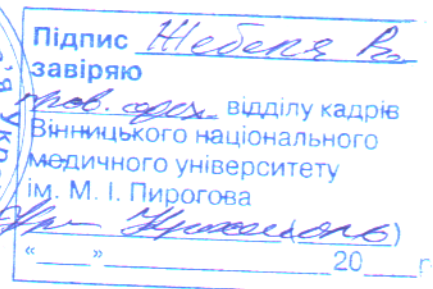 Підпис Жебеля В.
завіряю
пров. фах. відділу кадрів
Вінницького національного
медичного університету
ім. М. І. Пирогова
( )
“ ” 20 р